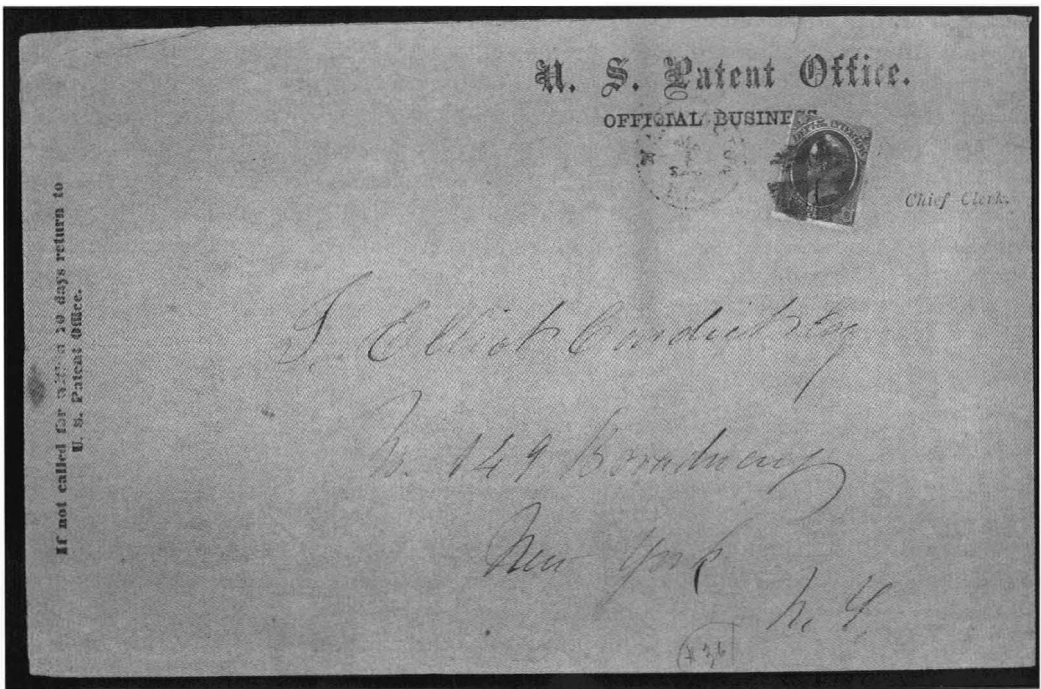 U. S. Patent Office.
OFFICIAL BUSINESS
Chief Clerk.
If not called for within 10 days return to
U. S. Patent Office.
Elliot
No. 149 Broadway
New York
N. Y.